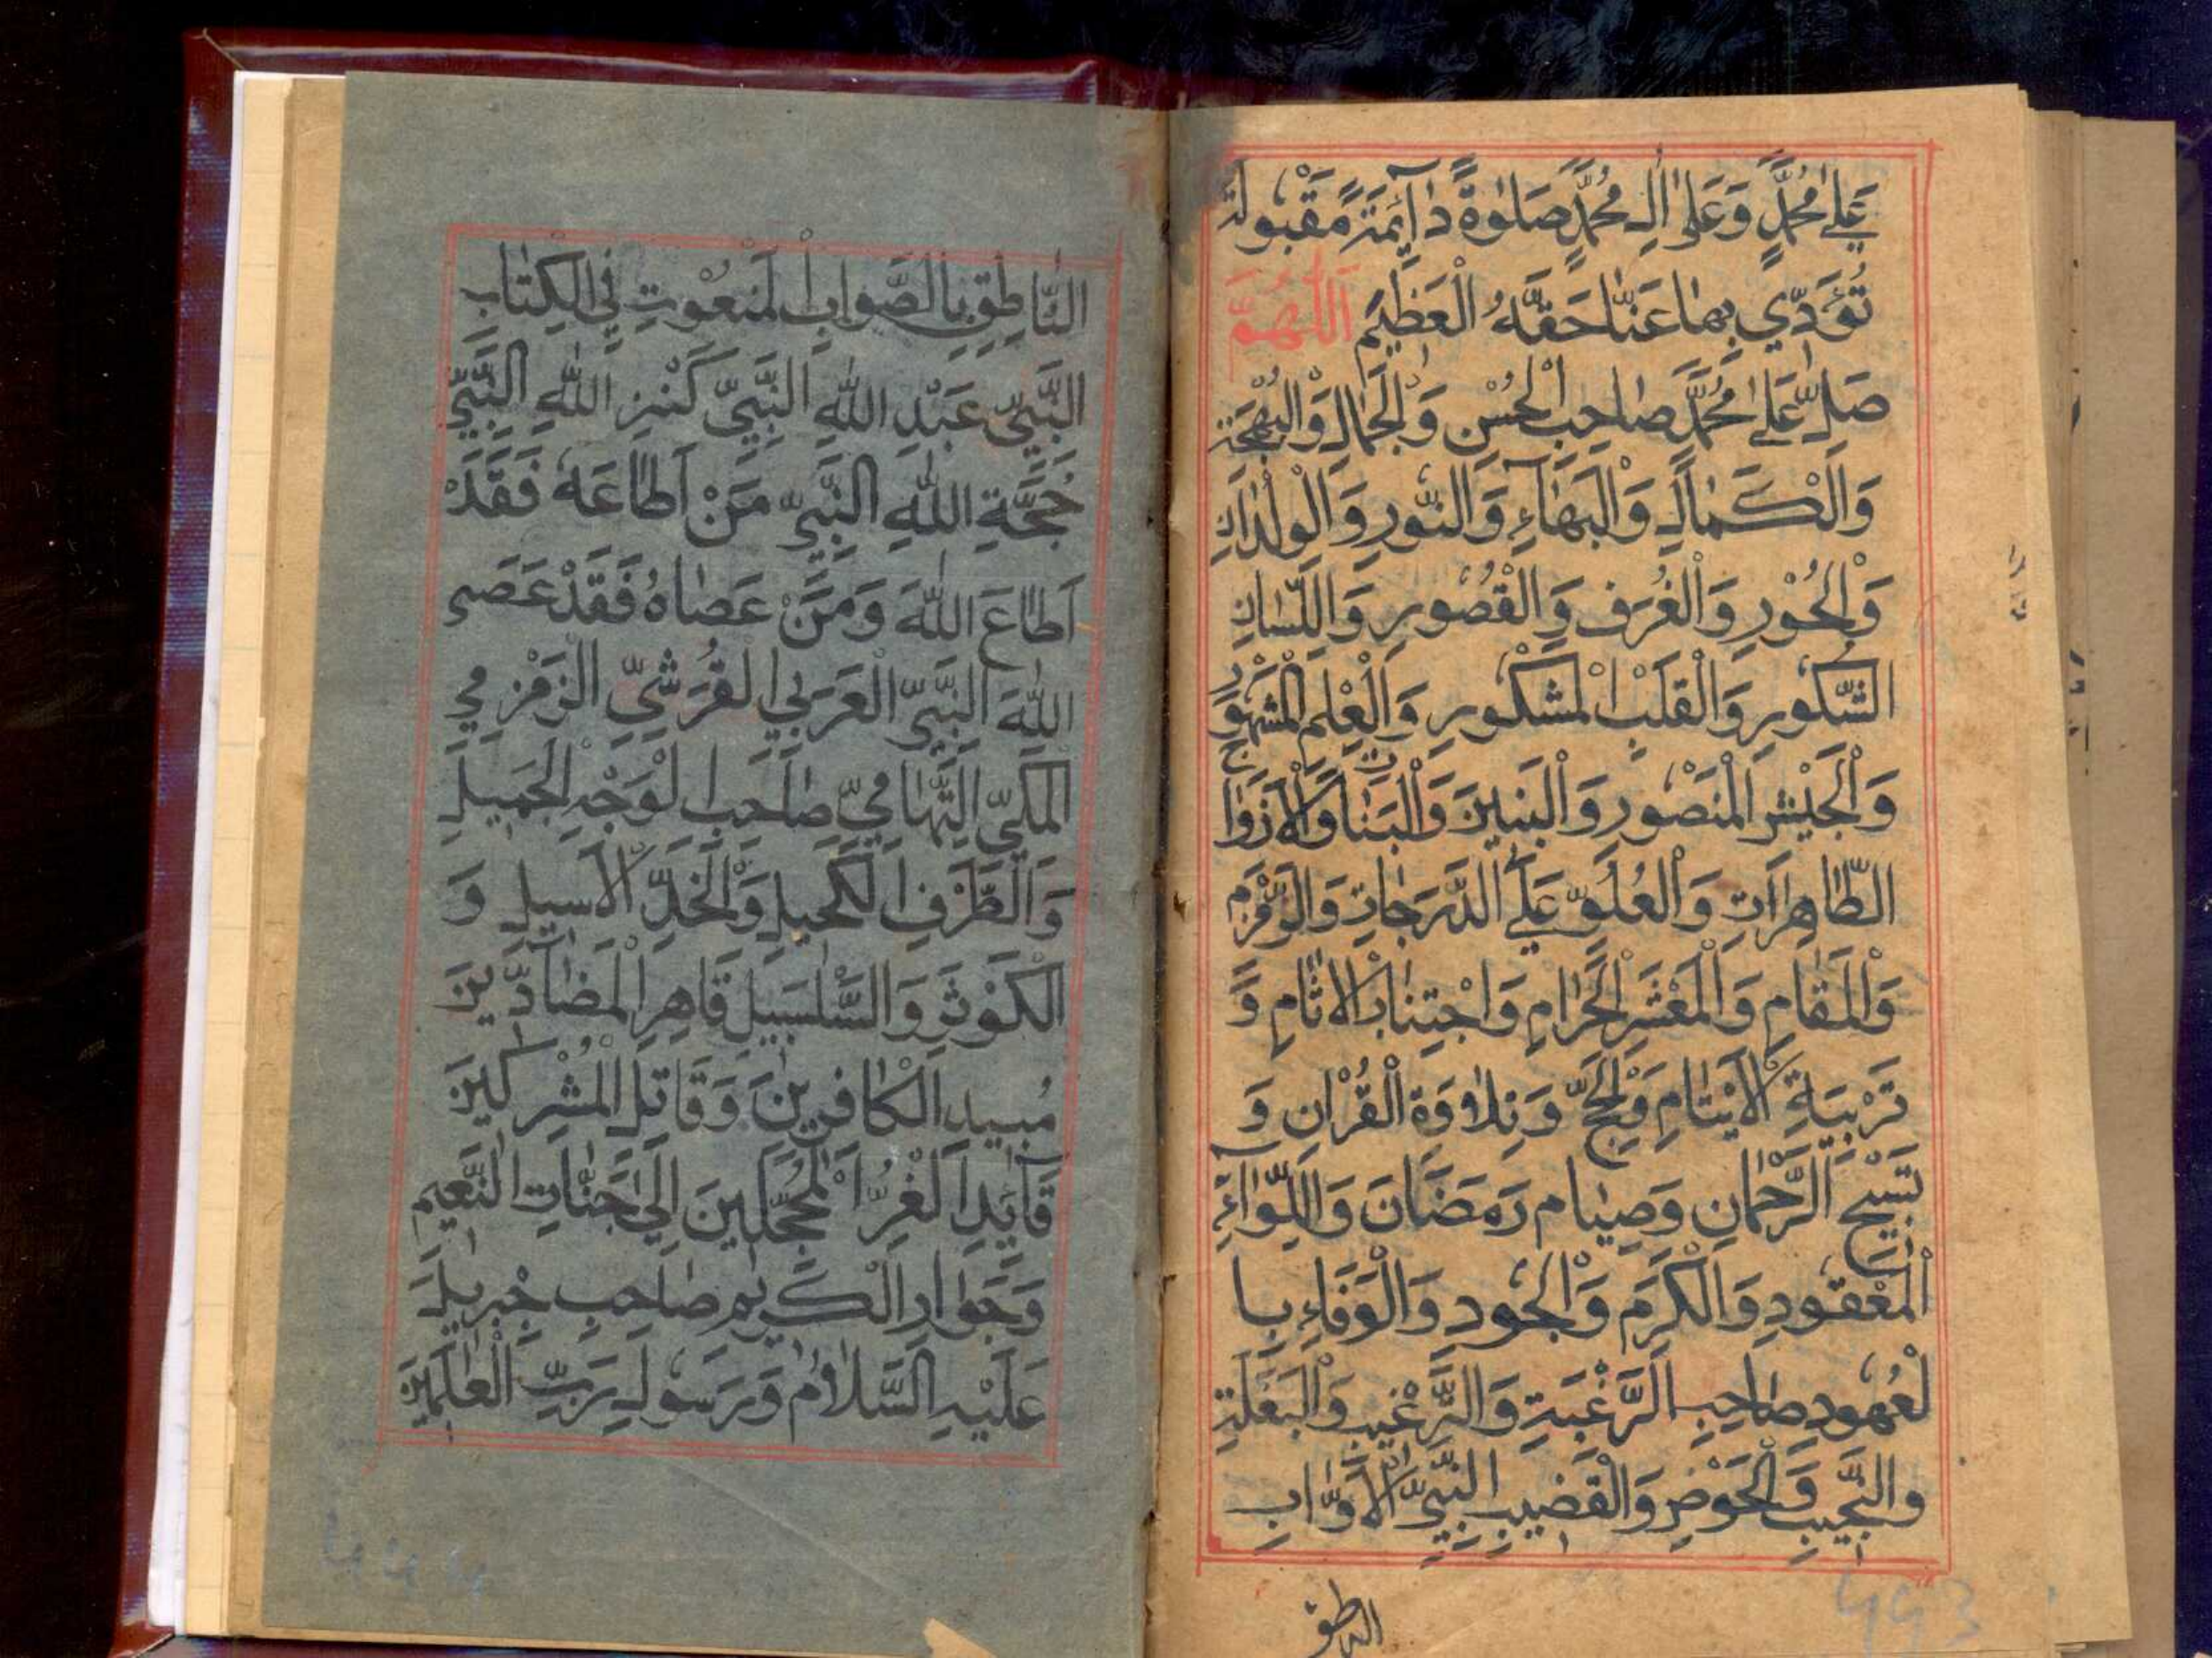 عَلٰى مُحَمَّدٍ وَعَلٰى اٰلِ مُحَمَّدٍ صَلٰوةً دَآئِمَةً مَّقْبُولَةً
تُؤَدِّي بِهَا عَنَّا حَقَّهُ الْعَظِيْمَ اَللّٰهُمَّ
صَلِّ عَلٰى مُحَمَّدٍ صَاحِبِ الْحُسْنِ وَالْجَمَالِ وَالْبَهْجَةِ
وَالْكَمَالِ وَالْبَهَآءِ وَالنُّورِ وَالْوِلْدَانِ
وَالْحُوْرِ وَالْغُرَفِ وَالْقُصُورِ وَاللِّسَانِ
الشَّكُورِ وَالْقَلْبِ الْمَشْكُورِ وَالْعِلْمِ الْمَشْهُورِ
وَالْجَيْشِ الْمَنْصُورِ وَالْبَنِينَ وَالْبَنَاتِ وَالْاَزْوَاجِ
الطَّاهِرَاتِ وَالْعُلُوِّ عَلَى الدَّرَجَاتِ وَالزَّمْزَمِ
وَالْمَقَامِ وَالْمَعْشَرِ الْحَرَامِ وَاجْتِنَابِ الْاٰثَامِ وَ
تَرْبِيَةِ الْاَيْتَامِ وَالْحَجِّ وَتِلَاوَةِ الْقُرْاٰنِ وَ
تَسْبِيْحِ الرَّحْمَانِ وَصِيَامِ رَمَضَانَ وَاللِّوَآءِ
الْمَعْقُودِ وَالْكَرَمِ وَالْجُودِ وَالْوَفَاءِ بِا
لْعُهُودِ صَاحِبِ الرَّغْبَةِ وَالتَّرْغِيْبِ وَالْبَغْلَةِ
وَالنَّجِيْبِ وَالْحَوْضِ وَالْقَضِيبِ النَّبِيِّ الْاَوَّابِ
الناطق
النَّاطِقِ بِالصَّوَابِ الْمَنْعُوْتِ فِي الْكِتَابِ
النَّبِيِّ عَبْدِ اللّٰهِ النَّبِيِّ كَنْزِ اللّٰهِ النَّبِيِّ
حُجَّةِ اللّٰهِ النَّبِيِّ مَنْ اَطَاعَهُ فَقَدْ
اَطَاعَ اللّٰهَ وَمَنْ عَصَاهُ فَقَدْ عَصَى
اللّٰهَ النَّبِيِّ الْعَرَبِيِ الْقُرَشِيِّ الزَّمْزَمِي
الْمَكِّيِّ التِّهَامِيِّ صَاحِبِ الْوَجْهِ الْجَمِيلِ
وَالطَّرْفِ الْكَحِيلِ وَالْخَدِّ الْاَسِيلِ وَ
الْكَوْثَرِ وَالسَّلْسَبِيلِ قَاهِرِ الْمُضَآدِّينَ
مُبِيدِ الْكَافِرِينَ وَقَاتِلِ الْمُشْرِكِينَ
قَآئِدِ الْغُرِّ الْمُحَجَّلِينَ اِلٰى جَنَّاتِ النَّعِيمِ
وَجَوَارِ الْكَرِيمِ صَاحِبِ جِبْرِيلَ
عَلَيْهِ السَّلَامُ وَرَسُولِ رَبِّ الْعٰلَمِينَ